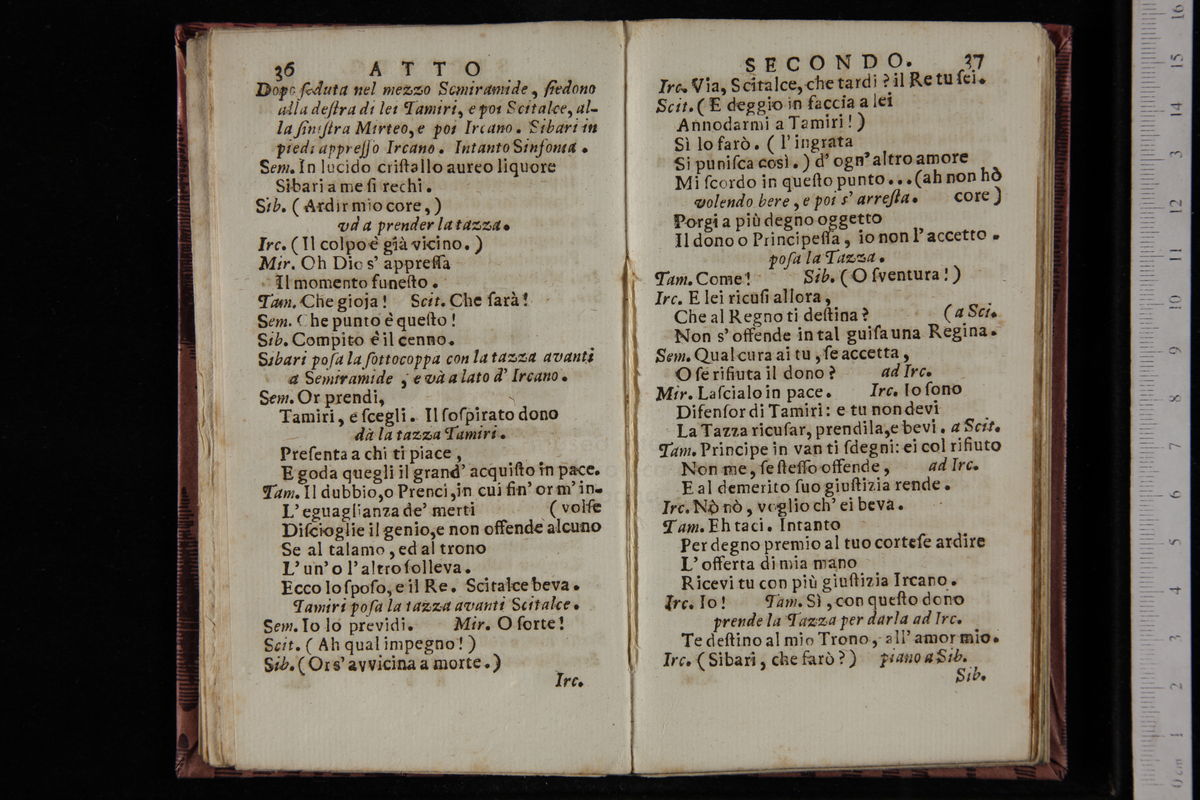 36 ATTO
Dopo ſeduta nel mezzo Semiramide, ſiedono
alla deſtra di lei Tamiri, e poi Scitalce, al-
la ſiniſtra Mirteo, e poi Ircano. Sibari in
piedi appreſſo Ircano. Intanto Sinfonia.
Sem. In lucido criſtallo aureo liquore
Sibari a me ſi rechi.
Sib. ( Ardir mio core, )
và a prender la tazza.
Irc. ( Il colpo è già vicino. )
Mir. Oh Dio s' appreſſa
Il momento funeſto.
Tam. Che gioja! Scit. Che ſarà!
Sem. Che punto è queſto!
Sib. Compito è il cenno.
Sibari poſa la ſottocoppa con la tazza avanti
a Semiramide, e và a lato d' Ircano.
Sem. Or prendi,
Tamiri, e ſcegli. Il ſoſpirato dono
dà la tazza Tamiri.
Preſenta a chi ti piace,
E goda quegli il grand' acquiſto in pace.
Tam. Il dubbio, o Prenci, in cui fin' or m' in-
L' eguaglianza de' merti (volſe
Diſcioglie il genio, e non offende alcuno
Se al talamo, ed al trono
L' un' o l' altro ſolleva.
Ecco lo ſpoſo, e il Re. Scitalce beva.
Tamiri poſa la tazza avanti Scitalce.
Sem. Io lo previdi. Mir. O ſorte!
Scit. ( Ah qual impegno! )
Sib. ( Or s' avvicina a morte. )
Irc.
SECONDO. 37
Irc. Via, Scitalce, che tardi? il Re tu ſei.
Scit. ( E deggio in faccia a lei
Annodarmi a Tamiri! )
Sì lo farò. ( l' ingrata
Si puniſca così. ) d' ogn' altro amore
Mi ſcordo in queſto punto... (ah non hò
volendo bere, e poi s' arreſta. core )
Porgi a più degno oggetto
Il dono o Principeſſa, io non l' accetto.
poſa la Tazza.
Tam. Come! Sib. ( O ſventura! )
Irc. E lei ricuſi allora,
Che al Regno ti deſtina? ( a Sci.
Non s' offende in tal guiſa una Regina.
Sem. Qual cura ai tu, ſe accetta,
O ſe rifiuta il dono? ad Irc.
Mir. Laſcialo in pace. Irc. Io ſono
Difenſor di Tamiri: e tu non devi
La Tazza ricuſar, prendila, e bevi. a Scit.
Tam. Principe in van ti ſdegni: ei col rifiuto
Non me, ſe ſteſſo offende, ad Irc.
E al demerito ſuo giuſtizia rende.
Irc. Nò nò, voglio ch' ei beva.
Tam. Eh taci. Intanto
Per degno premio al tuo corteſe ardire
L' offerta di mia mano
Ricevi tu con più giuſtizia Ircano.
Irc. Io! Tam. Sì, con queſto dono
prende la Tazza per darla ad Irc.
Te deſtino al mio Trono, all' amor mio.
Irc. ( Sibari, che farò? ) piano a Sib.
Sib.
0 cm 1 2 3 4 5 6 7 8 9 10 11 12 13 14 15 16